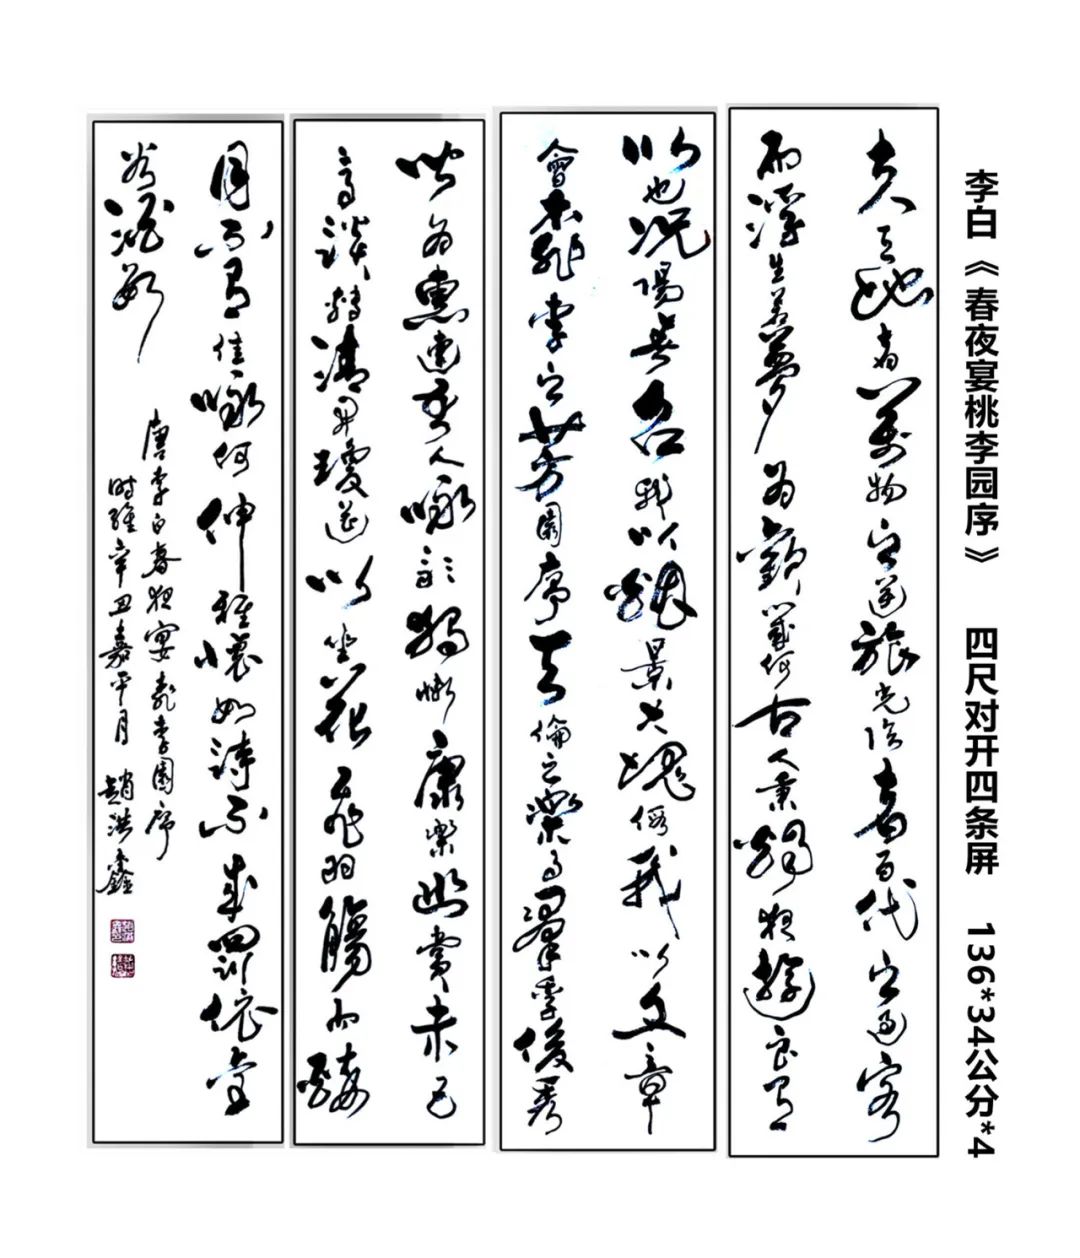 李白《春夜宴桃李园序》 四尺对开四条屏 136*34公分*4
夫天地者萬物之逆旅光陰者百代之過客
而浮生若夢為歡幾何古人秉燭夜遊良有
以也况陽春召我以煙景大塊假我以文章
會桃李之芳園序天倫之樂事羣季俊秀
皆為惠連吾人咏歌獨慚康樂幽賞未已
高談轉清開瓊筵以坐花飛羽觴而醉
月不有佳咏何伸雅懷如詩不成罰依金
谷酒數
唐李白春夜宴桃李園序
时維辛丑嘉平月 趙洪鑫